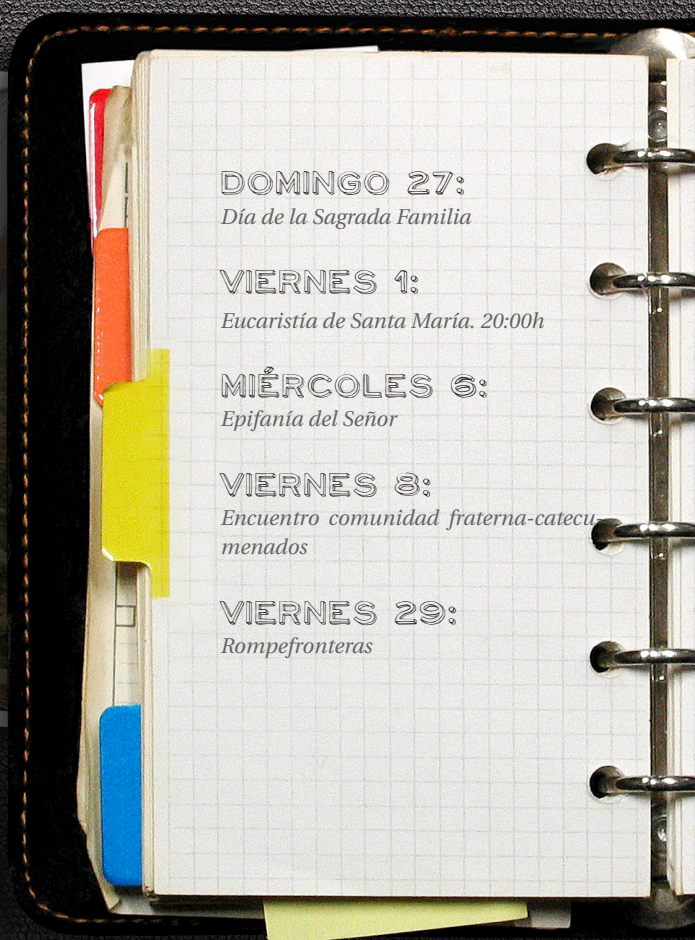 DOMINGO 27:
Día de la Sagrada Familia
VIERNES 1:
Eucaristía de Santa María. 20:00h
MIÉRCOLES 6:
Epifanía del Señor
VIERNES 8:
Encuentro comunidad fraterna-catecu-
menados
VIERNES 29:
Rompefronteras